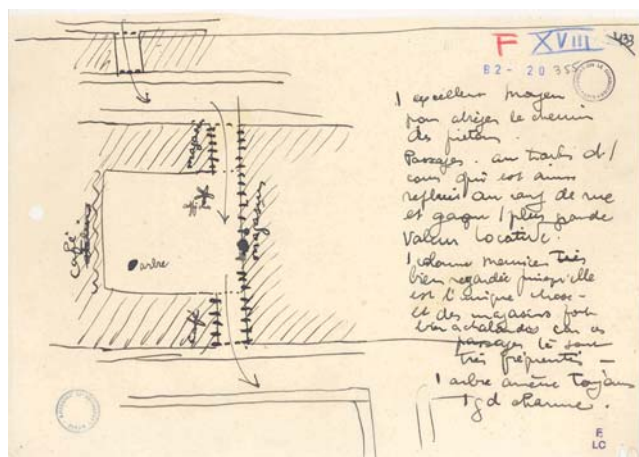 F XVIII 433
B2-20 355
1 excellent moyen
pour abréger le chemin
des piétons.
Passages. au d'1
cour qui est ainsi
au rang de rue
et gagne 1 plus grande
Valeur Locative.
1 colonne Très
bien regardée puisqu'elle
est l'unique chose —
et des magasins fort
bien achalandés car ces
passages là sont
très fréquentés —
1 arbre amène Toujours
1 gd charme.
magasins
magasins
café
arbre
café
FLC